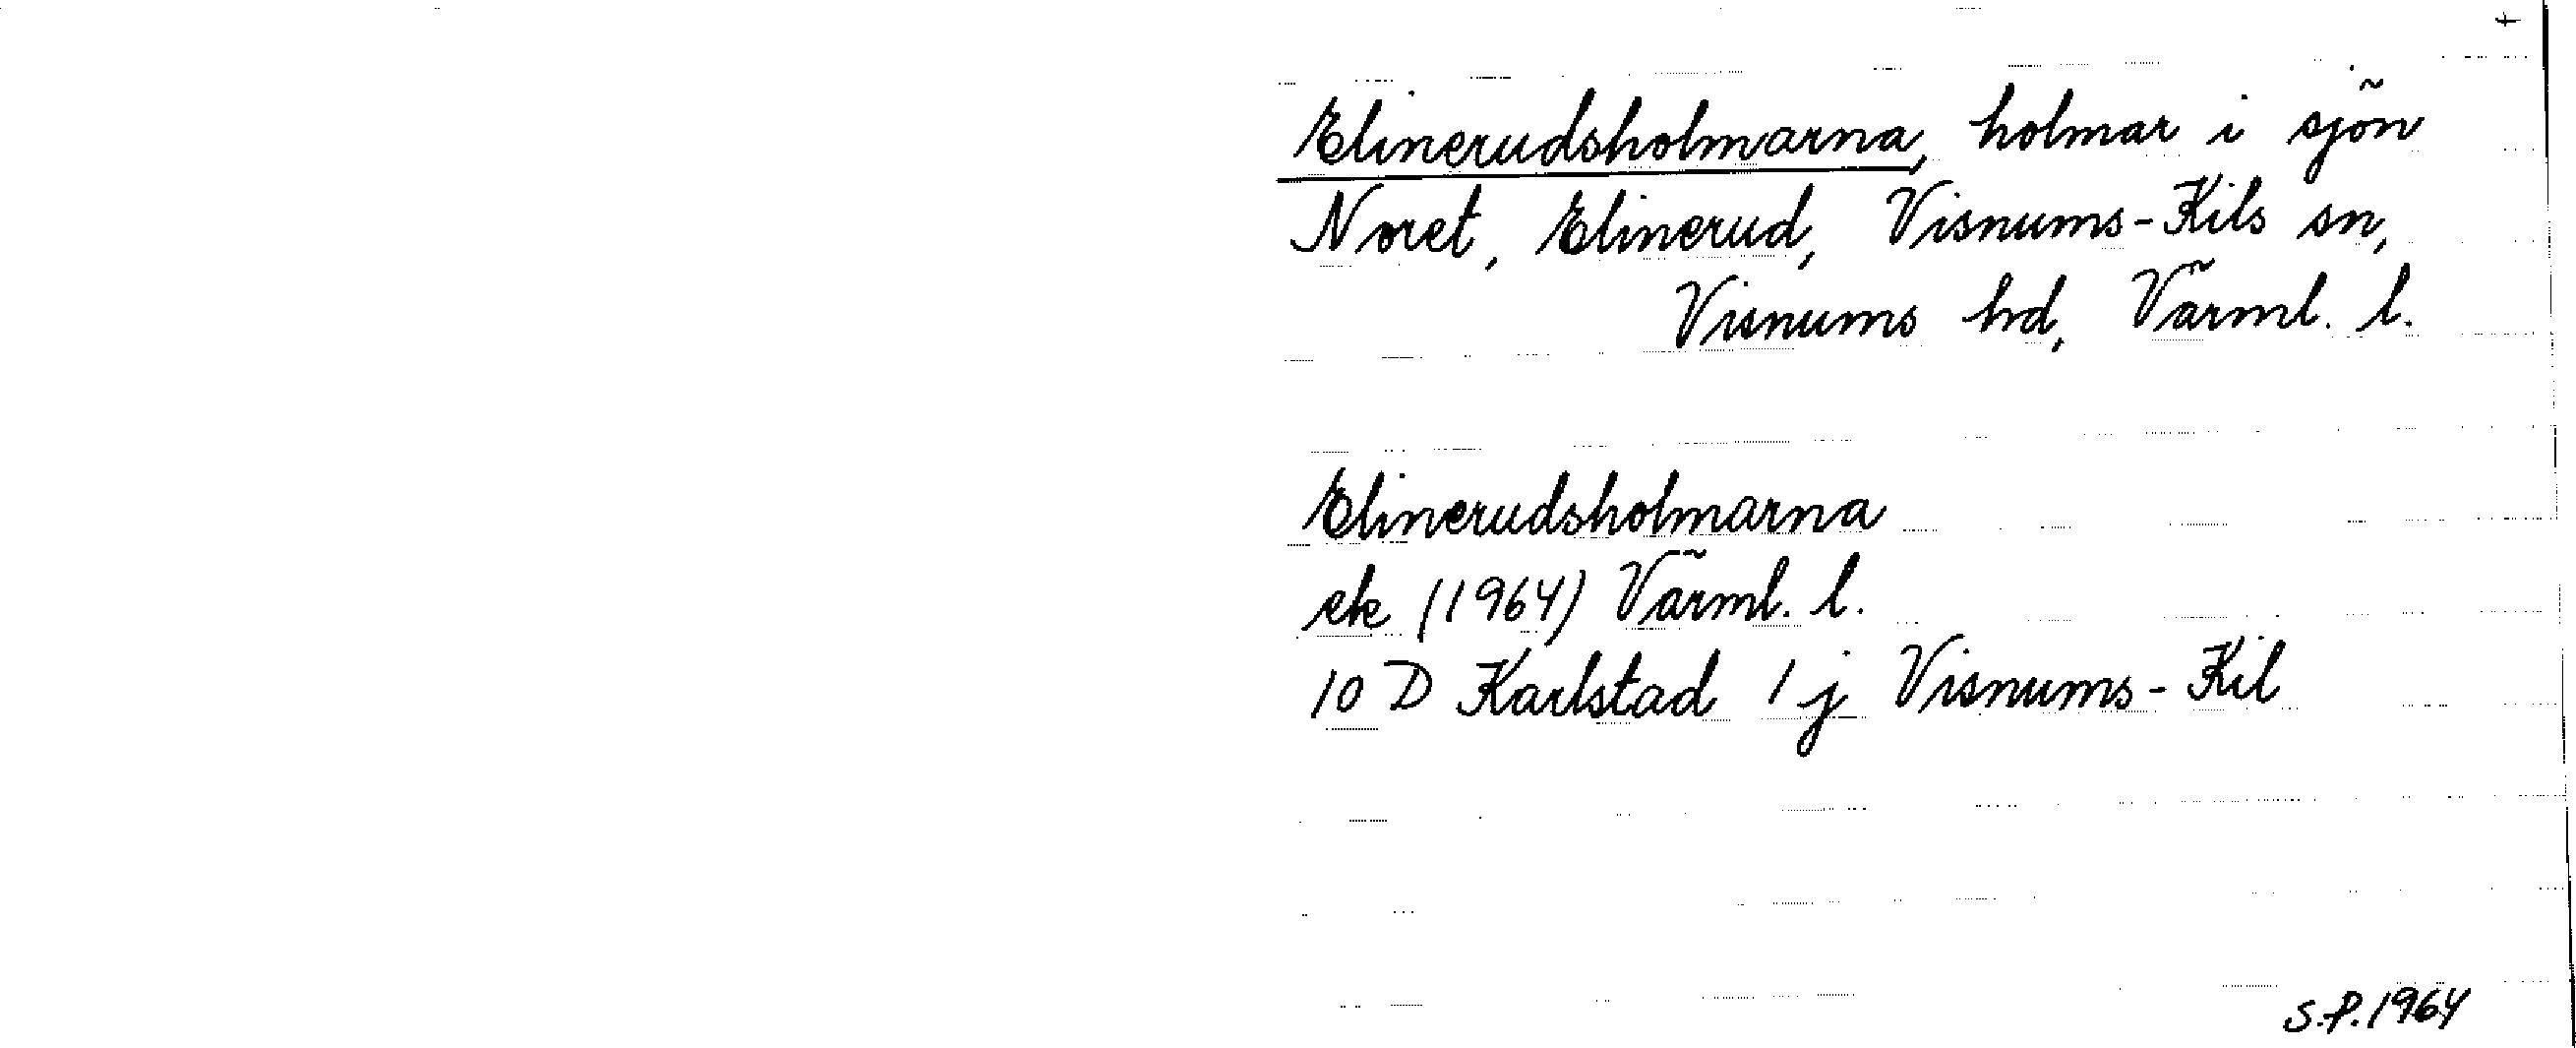 Elinerudsholmarna, holmar i sjön
Noret, Elinerud, Visnums-Kils sn,
Visnums hd, Värml. l.
Elinerudsholmarna
ek (1964) Värml. l.
10 D Karlstad 1 j Visnums-Kil
S.P. 1964